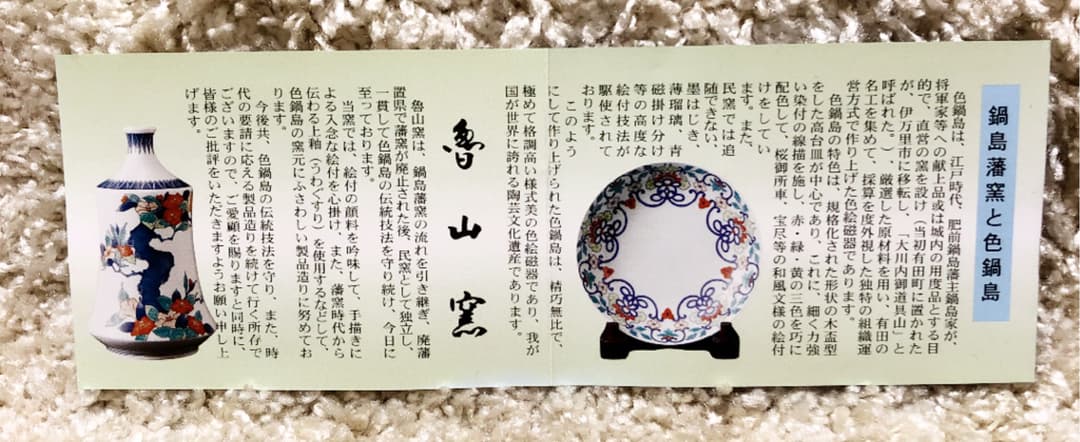 鍋島藩窯と色鍋島
色鍋島は、江戸時代、肥前鍋島藩主鍋島家が、
将軍家等への献上品或は城内の用度品とする目
的で、直営の窯を設け(当初有田町に置かれた
が、伊万里市に移転し、「大川内御道具山」と
呼ばれた。)、厳選した原材料を用い、有田の
名工を集めて、採算を度外視した独特の組織運
営方式で作り上げた色絵磁器であります。
色鍋島の特色は、規格化された形状の木盃型
をした高台皿が中心であり、これに、細く力強
い染付の線描を施し、赤・緑・黄の三色を巧に
配色して、桜御所車、宝尽等の和風文様の絵付
けをしてい
ます。また、
民窯では追
随できない、
墨はじき、
薄瑠璃、青
磁掛け分け
等の高度な
絵付技法が
駆使されて
おります。
このよう
にして作り上げられた色鍋島は、精巧無比で、
極めて格調高い様式美の色絵磁器であり、我が
国が世界に誇れる陶芸文化遺産であります。
魯山窯
魯山窯は、鍋島藩窯の流れを引き継ぎ、廃藩
置県で藩窯が廃止された後、民窯として独立し、
一貫して色鍋島の伝統技法を守り続け、今日に
至っております。
当窯では、絵付の顔料を吟味して、手描きに
よる入念な絵付けを心掛け、また、藩窯時代から
伝わる上釉(うわぐすり)を使用するなどして、
色鍋島の窯元にふさわしい製品造りに努めてお
ります。
今後共、色鍋島の伝統技法を守り、また、時
代の要請に応える製品造りを続けて行く所存で
ございますので、ご愛顧を賜りますと同時に、
皆様のご批評をいただきますようお願い申し上
げます。